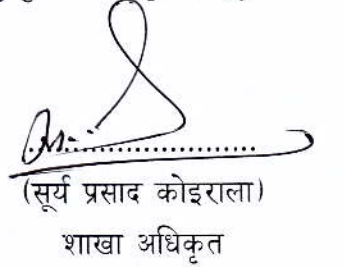 (सूर्य प्रसाद कोइराला)
शाखा अधिकृत